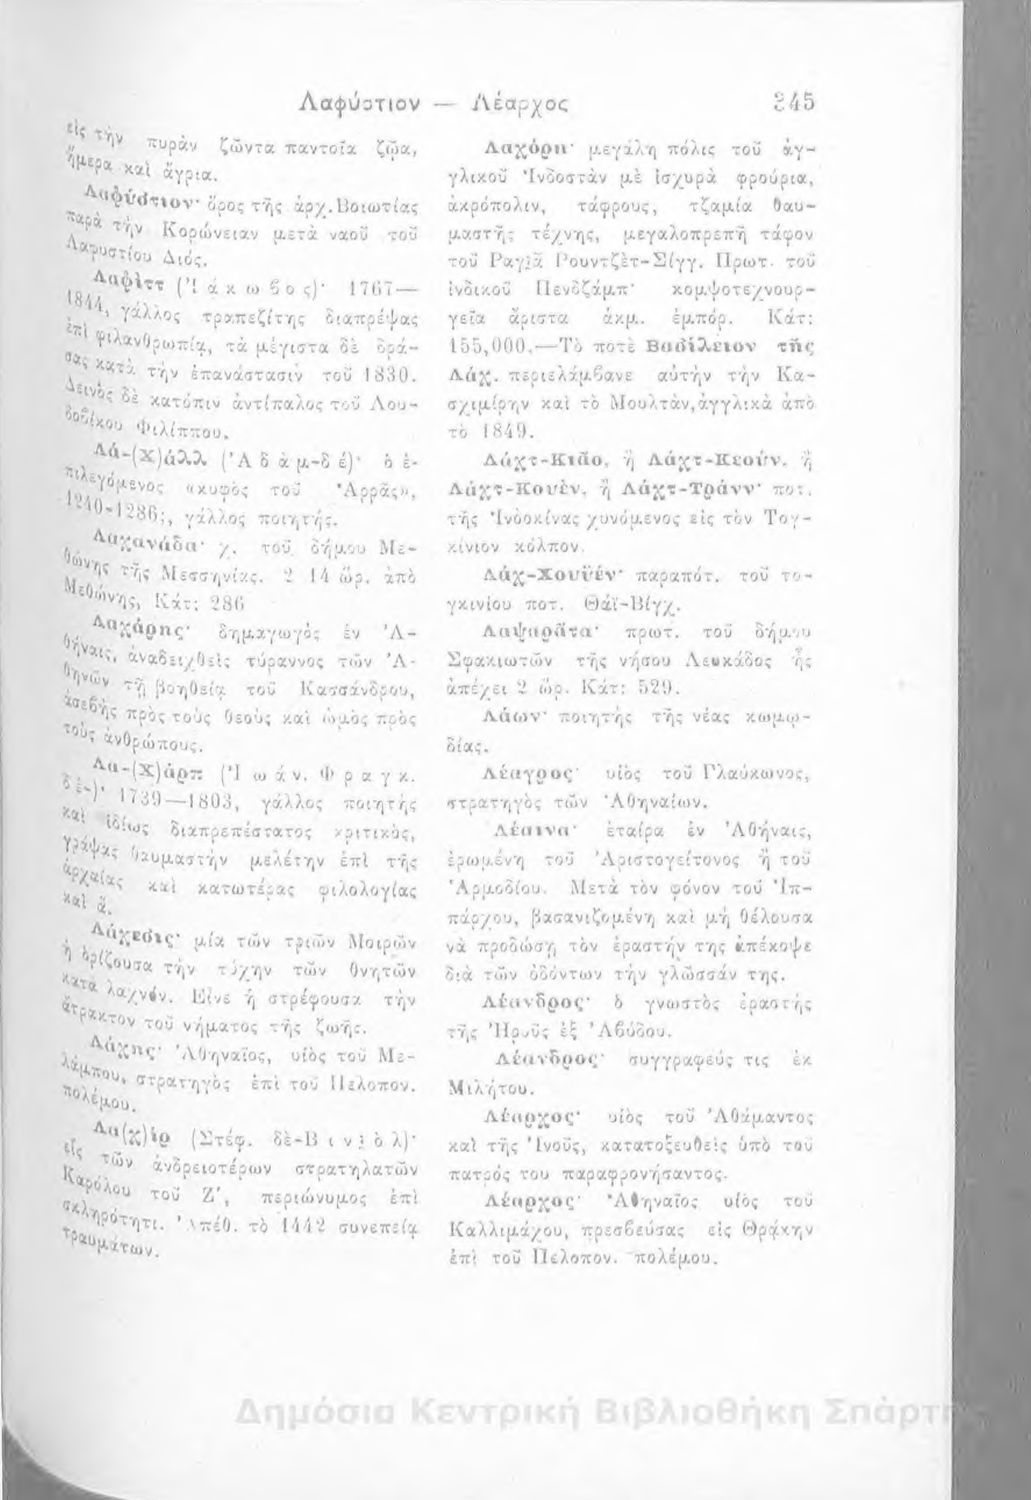 Λαφύστιον — Λέαρχος 345
εἰς τὴν πυρὰν ζῶντα παντοῖα ζῷα,
ἥμερα καὶ ἄγρια.
Λαφύστιον· ὄρος τῆς ἀρχ. Βοιωτίας
παρὰ τὴν Κορώνειαν μετὰ ναοῦ τοῦ
Λαφυστίου Διός.
Λαφὶττ (Ἰάκωβος)· 1767—
1844, γάλλος τραπεζίτης διαπρέψας
ἐπὶ φιλανθρωπίᾳ, τὰ μέγιστα δὲ δρά-
σας κατὰ τὴν ἐπανάστασιν τοῦ 1830.
Δεινὸς δὲ κατόπιν ἀντίπαλος τοῦ Λου-
δοβίκου Φιλίππου.
Λά-(Χ)άλλ (Ἀδὰμ-δέ)· ὁ ἐ-
πιλεγόμενος «κυφὸς τοῦ Ἀρρᾶς»,
1240-1286;, γάλλος ποιητής.
Λαχανάδα· χ. τοῦ δήμου Με-
θώνης τῆς Μεσσηνίας. 2 14 ὥρ. ἀπὸ
Μεθώνης, Κάτ: 286
Λαχάρης· δημαγωγὸς ἐν Ἀ-
θήναις, ἀναδειχθεὶς τύραννος τῶν Ἀ-
θηνῶν τῇ βοηθείᾳ τοῦ Κασσάνδρου,
ἀσεβὴς πρὸς τοὺς θεοὺς καὶ ὠμὸς πρὸς
τοὺς ἀνθρώπους.
Λα-(Χ)άρπ (Ἰωάν. Φραγκ.
δέ-)· 1739—1803, γάλλος ποιητὴς
καὶ ἰδίως διαπρεπέστατος κριτικὸς,
γράψας θαυμαστὴν μελέτην ἐπὶ τῆς
ἀρχαίας καὶ κατωτέρας φιλολογίας
καὶ ἄ.
Λάχεσις· μία τῶν τριῶν Μοιρῶν
ἡ ὁρίζουσα τὴν τύχην τῶν θνητῶν
κατὰ λαχνόν. Εἶνε ἡ στρέφουσα τὴν
ἄτρακτον τοῦ νήματος τῆς ζωῆς.
Λάχης· Ἀθηναῖος, υἱὸς τοῦ Με-
λάμπου, στρατηγὸς ἐπὶ τοῦ Πελοπον.
πολέμου.
Λα(χ)ὶρ (Στέφ. δὲ-Βινιὸλ)·
εἷς τῶν ἀνδρειοτέρων στρατηλατῶν
Καρόλου τοῦ Ζ', περιώνυμος ἐπὶ
σκληρότητι. Ἀπέθ. τὸ 1442 συνεπείᾳ
τραυμάτων.
Λαχόρη· μεγάλη πόλις τοῦ ἀγ-
γλικοῦ Ἰνδοστὰν μὲ ἰσχυρὰ φρούρια,
ἀκρόπολιν, τάφρους, τζαμία θαυ-
μαστῆς τέχνης, μεγαλοπρεπῆ τάφον
τοῦ Ραγιᾶ Ρουντζὲτ-Σίγγ. Πρωτ. τοῦ
ἰνδικοῦ Πενδζάμπ· κομψοτεχνουρ-
γεῖα ἄριστα ἀκμ. ἐμπόρ. Κάτ:
155,000.—Τὸ ποτὲ Βασίλειον τῆς
Λάχ. περιελάμβανε αὐτὴν τὴν Κα-
σχιμίρην καὶ τὸ Μουλτὰν, ἀγγλικὰ ἀπὸ
τὸ 1849.
Λάχτ-Κιᾶο, ἢ Λάχτ-Κεούν, ἢ
Λάχτ-Κουὲν, ἢ Λάχτ-Τράνν· ποτ.
τῆς Ἰνδοκίνας χυνόμενος εἰς τὸν Τογ-
κίνιον κόλπον.
Λάχ-Χουϋέν· παραπότ. τοῦ το-
γκινίου ποτ. Θάϊ-Βίγχ.
Λαψαρᾶτα· πρωτ. τοῦ δήμου
Σφακιωτῶν τῆς νήσου Λευκάδος ἧς
ἀπέχει 2 ὥρ. Κάτ: 529.
Λάων· ποιητὴς τῆς νέας κωμῳ-
δίας.
Λέαγρος· υἱὸς τοῦ Γλαύκωνος,
στρατηγὸς τῶν Ἀθηναίων.
Λέαινα· ἑταίρα ἐν Ἀθήναις,
ἐρωμένη τοῦ Ἀριστογείτονος ἢ τοῦ
Ἁρμοδίου. Μετὰ τὸν φόνον τοῦ Ἱπ-
πάρχου, βασανιζομένη καὶ μὴ θέλουσα
νὰ προδώσῃ τὸν ἐραστήν της ἀπέκοψε
διὰ τῶν ὀδόντων τὴν γλῶσσάν της.
Λέανδρος· ὁ γνωστὸς ἐραστὴς
τῆς Ἡροῦς ἐξ Ἀβύδου.
Λέανδρος· συγγραφεύς τις ἐκ
Μιλήτου.
Λέαρχος· υἱὸς τοῦ Ἀθάμαντος
καὶ τῆς Ἰνοῦς, κατατοξευθεὶς ὑπὸ τοῦ
πατρός του παραφρονήσαντος.
Λέαρχος· Ἀθηναῖος υἱὸς τοῦ
Καλλιμάχου, πρεσβεύσας εἰς Θρᾴκην
ἐπὶ τοῦ Πελοπον. πολέμου.
Δημόσια Κεντρική Βιβλιοθήκη Σπάρτη